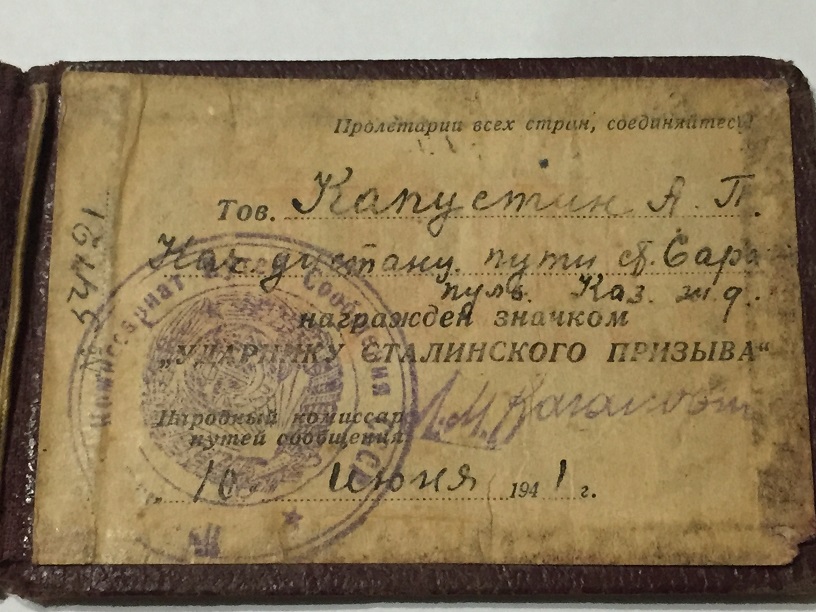 Пролетарии всех стран, соединяйтесь!
Тов. Капустин А. П.
Нач дистанц. пути ст. Сара
пуль. Каз. ж д.
награжден значком
„УДАРНИКУ СТАЛИНСКОГО ПРИЗЫВА“
Народный комиссар
путей сообщения
Л. М. Каганович
„ 10 “ Июня 1941 г.
№
Комиссариат Путей Сообщения СССР